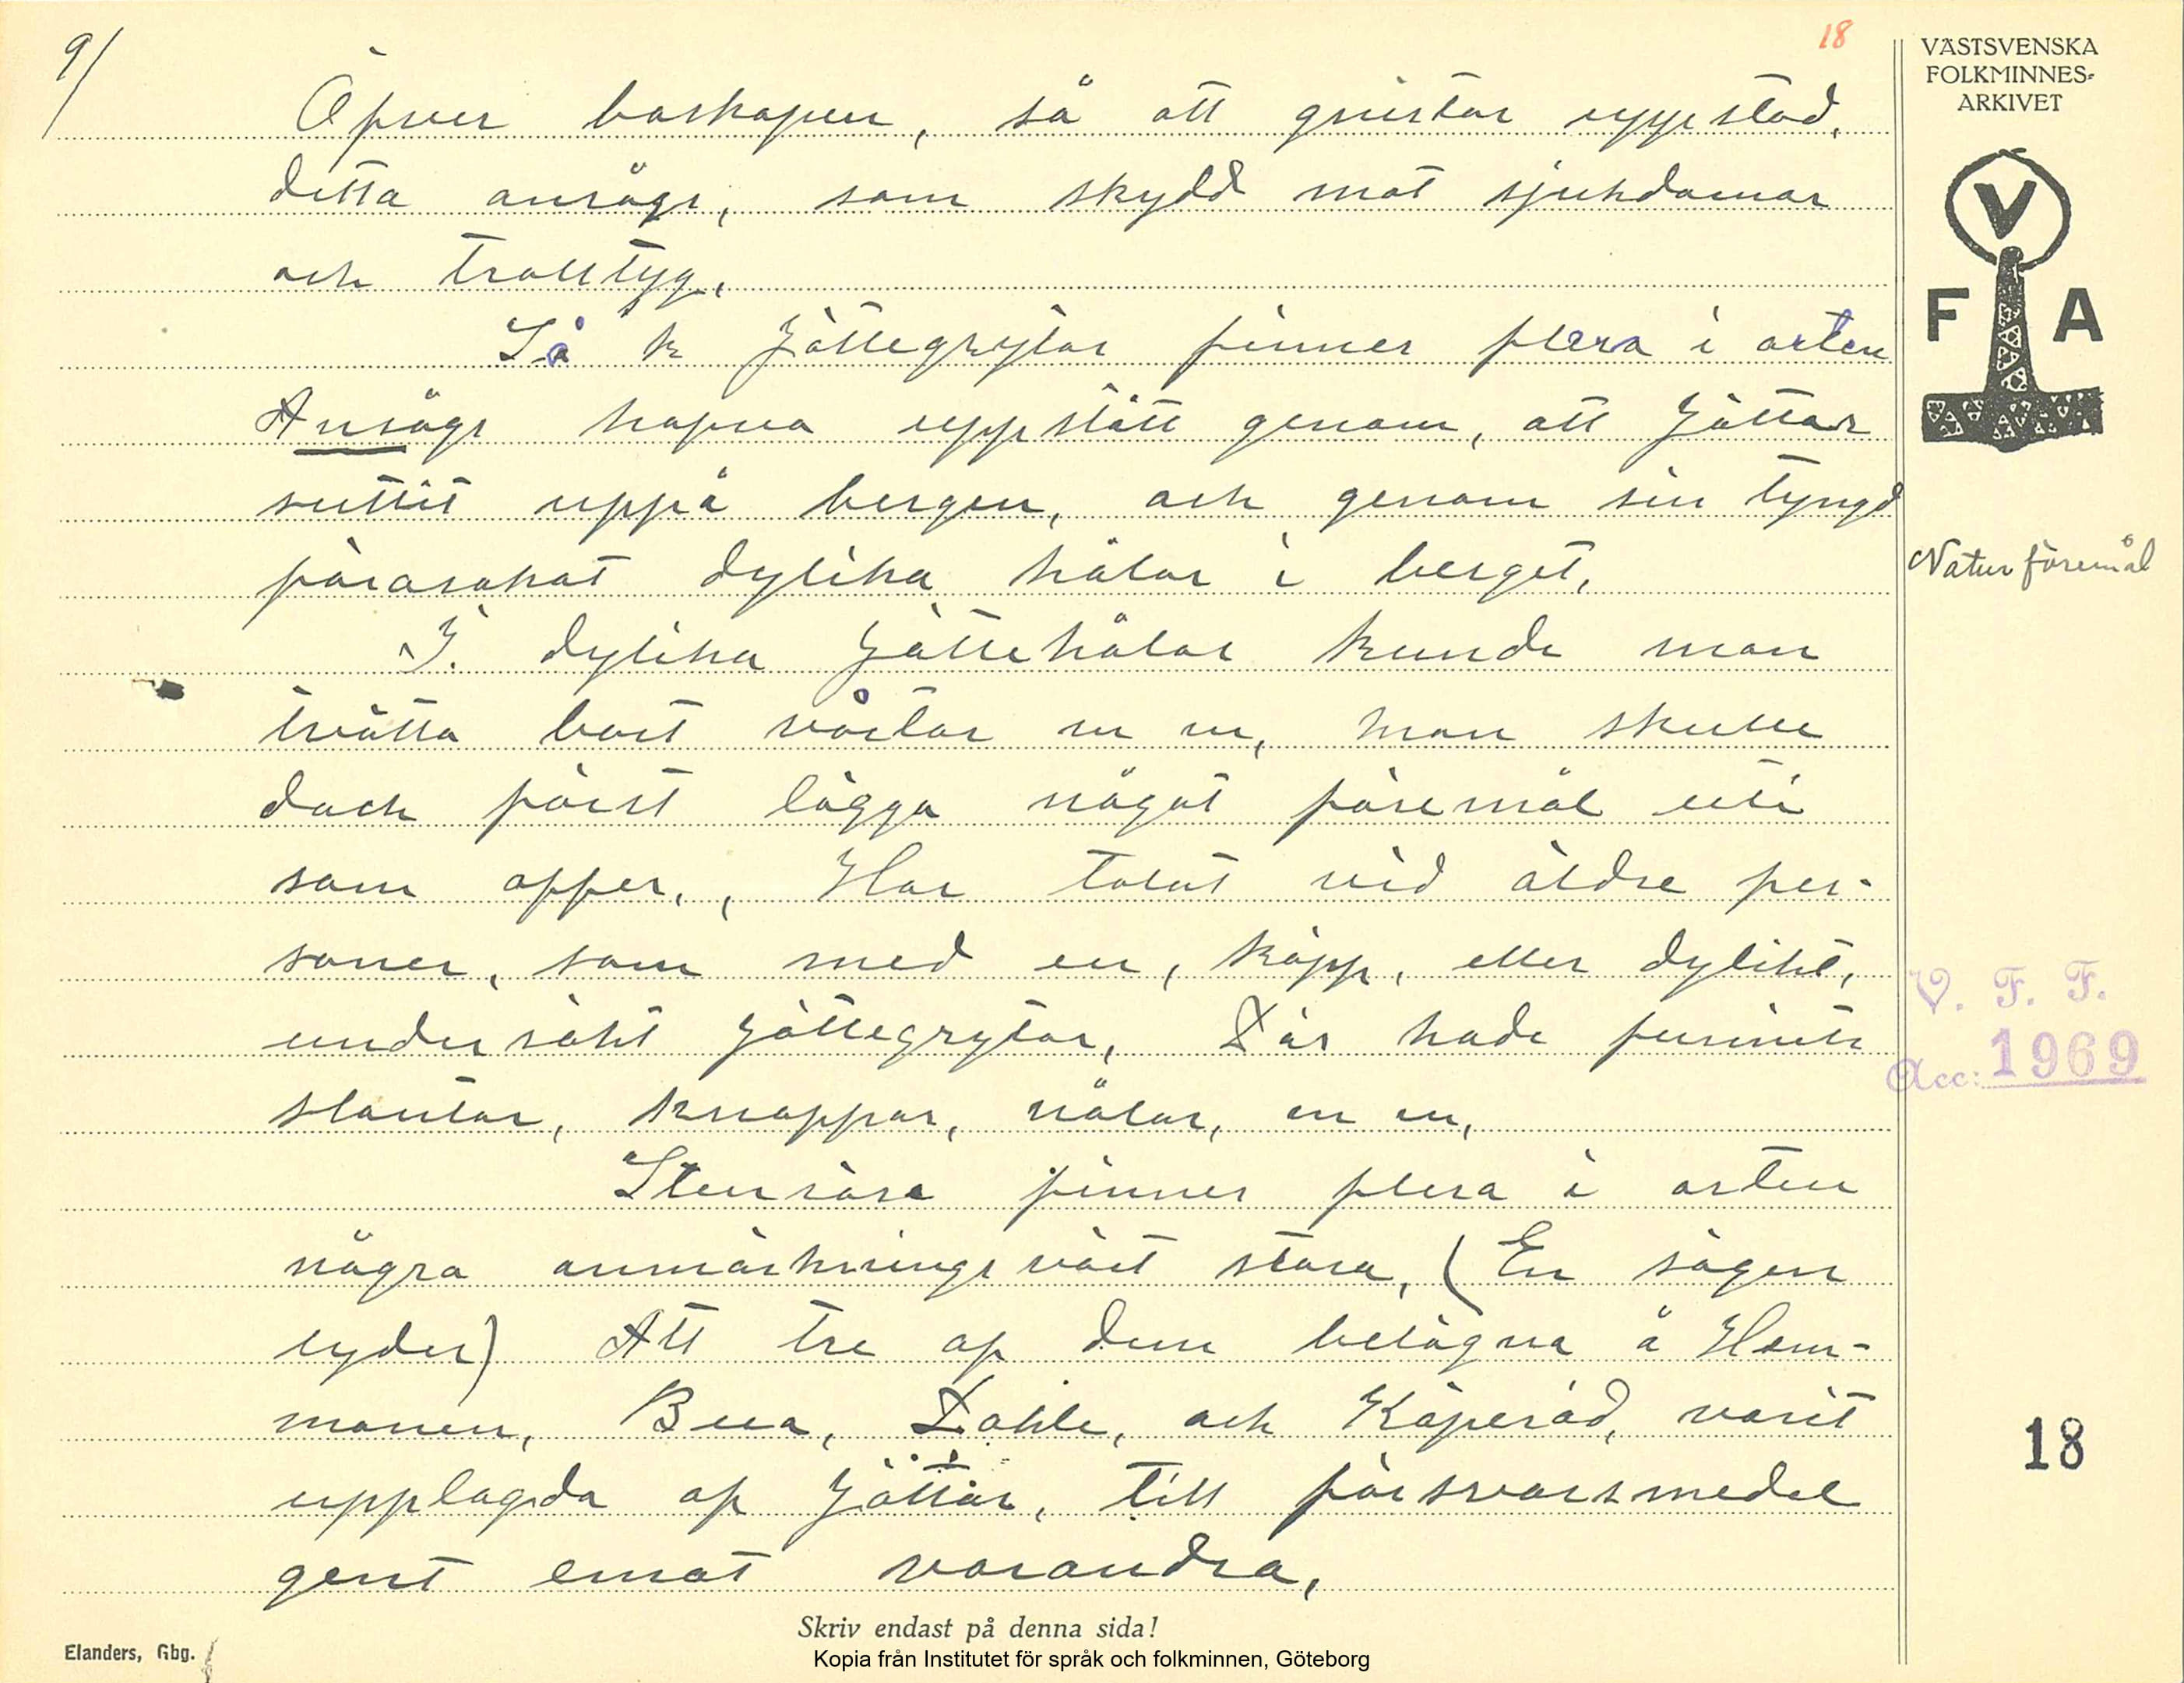 9/
18
Öfver boskapen, så att gnistor uppstod,
detta ansågs, som skydd mot sjukdomar
och trolltyg,
Så k Jättegrytor finnes flera i orten
Ansågs hafva uppstått genom, att Jättar
suttit uppå bergen, och genom sin tyngd
förorsakat dylika hålor i berget,
I. dylika Jättehålor kunde man
tvätta bort vårtor m m, man skulle
dock först lägga något föremål uti
som offer,, Har talat vid äldre per-
soner, som med en, käpp, eller dylikt,
undersökt Jättegrytor, Där hade funnits
slantar, knappar, nålar, m m,
Stenröse finnes flera i orten
några anmärkningsvärt stora, (En sägen
lyder) Att tre af dem belägna å Hem-
manen, Bua, Dahle, och Käperöd, varit
upplagda af Jättar, till försvarsmedel
gent emot varandra,
Skriv endast på denna sida!
Elanders, Gbg.
Kopia från Institutet för språk och folkminnen, Göteborg
VÄSTSVENSKA
FOLKMINNES-
ARKIVET
V
F A
Naturföremål
V. F. F.
Acc: 1969
18